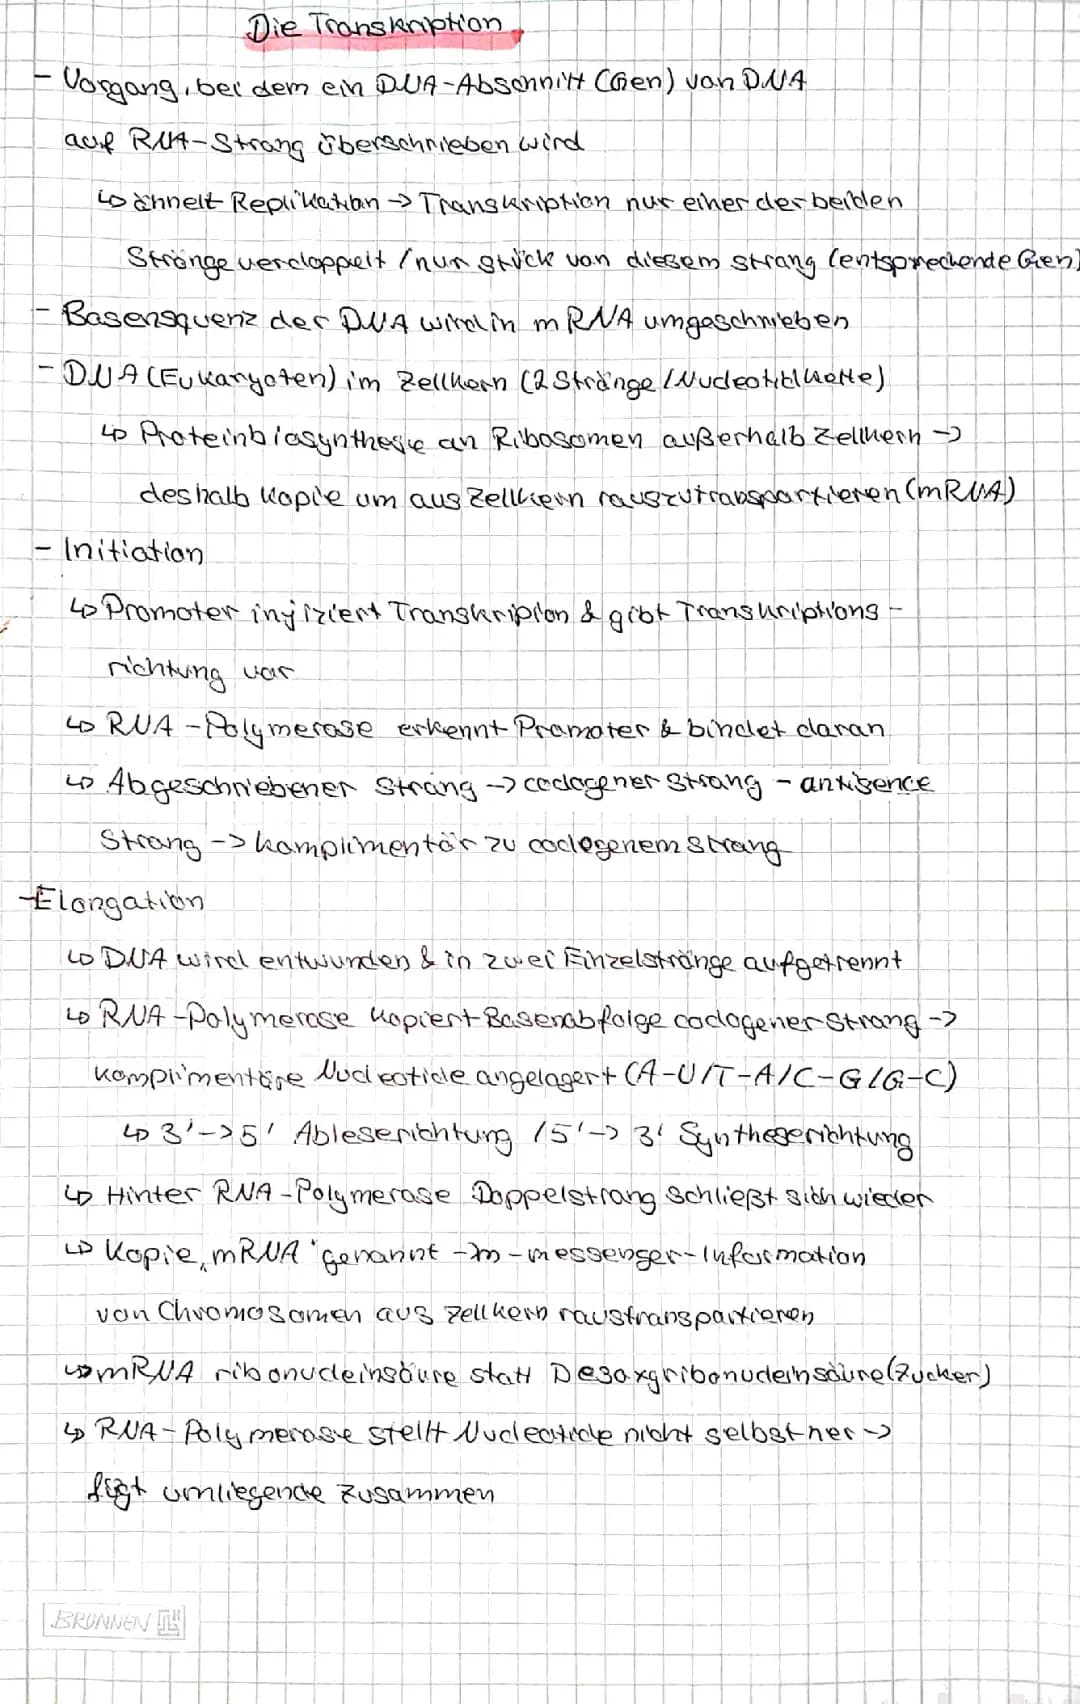 Die Transkription
- Vorgang, bei dem ein DNA-Abschnitt (Gen) von DNA
auf RNA-Strang überschrieben wird
↳ ähnelt Replikation → Transkription nur einer der beiden
Stränge verdoppelt / nur Stück von diesem Strang (entsprechende Gen)
- Basensquenz der DNA wird in mRNA umgeschrieben
- DNA (Eukaryoten) im Zellkern (2 Stränge / Nucleotidkette)
↳ Proteinbiosynthese an Ribosomen außerhalb Zellkern →
deshalb Kopie um aus Zellkern rauszutransportieren (mRNA)
- Initiation
↳ Promoter inifiziert Transkripion & gibt Transkriptions-
richtung vor
↳ RNA-Polymerase erkennt Promoter & bindet daran
↳ Abgeschriebener Strang → codogener Strang - antisence
Strang → komplimentär zu codogenem Strang
- Elongation
↳ DNA wird entwunden & in zwei Einzelstränge aufgetrennt
↳ RNA-Polymerase kopiert Basenabfolge codogener Strang →
komplimentäre Nucleotide angelagert (A-U/T-A/C-G/G-C)
↳ 3'→5' Ableserichtung / 5'→3' Syntheserichtung
↳ Hinter RNA-Polymerase Doppelstrang schließt sich wieder
↳ Kopie, mRNA genannt → m - messenger - Information
von Chromosomen aus Zellkern raustransportieren
↳ mRNA ribonucleinsäure statt Desoxyribonucleinsäure (Zucker)
↳ RNA-Polymerase stellt Nucleotide nicht selbst her →
fügt umliegende zusammen
BRUNNEN